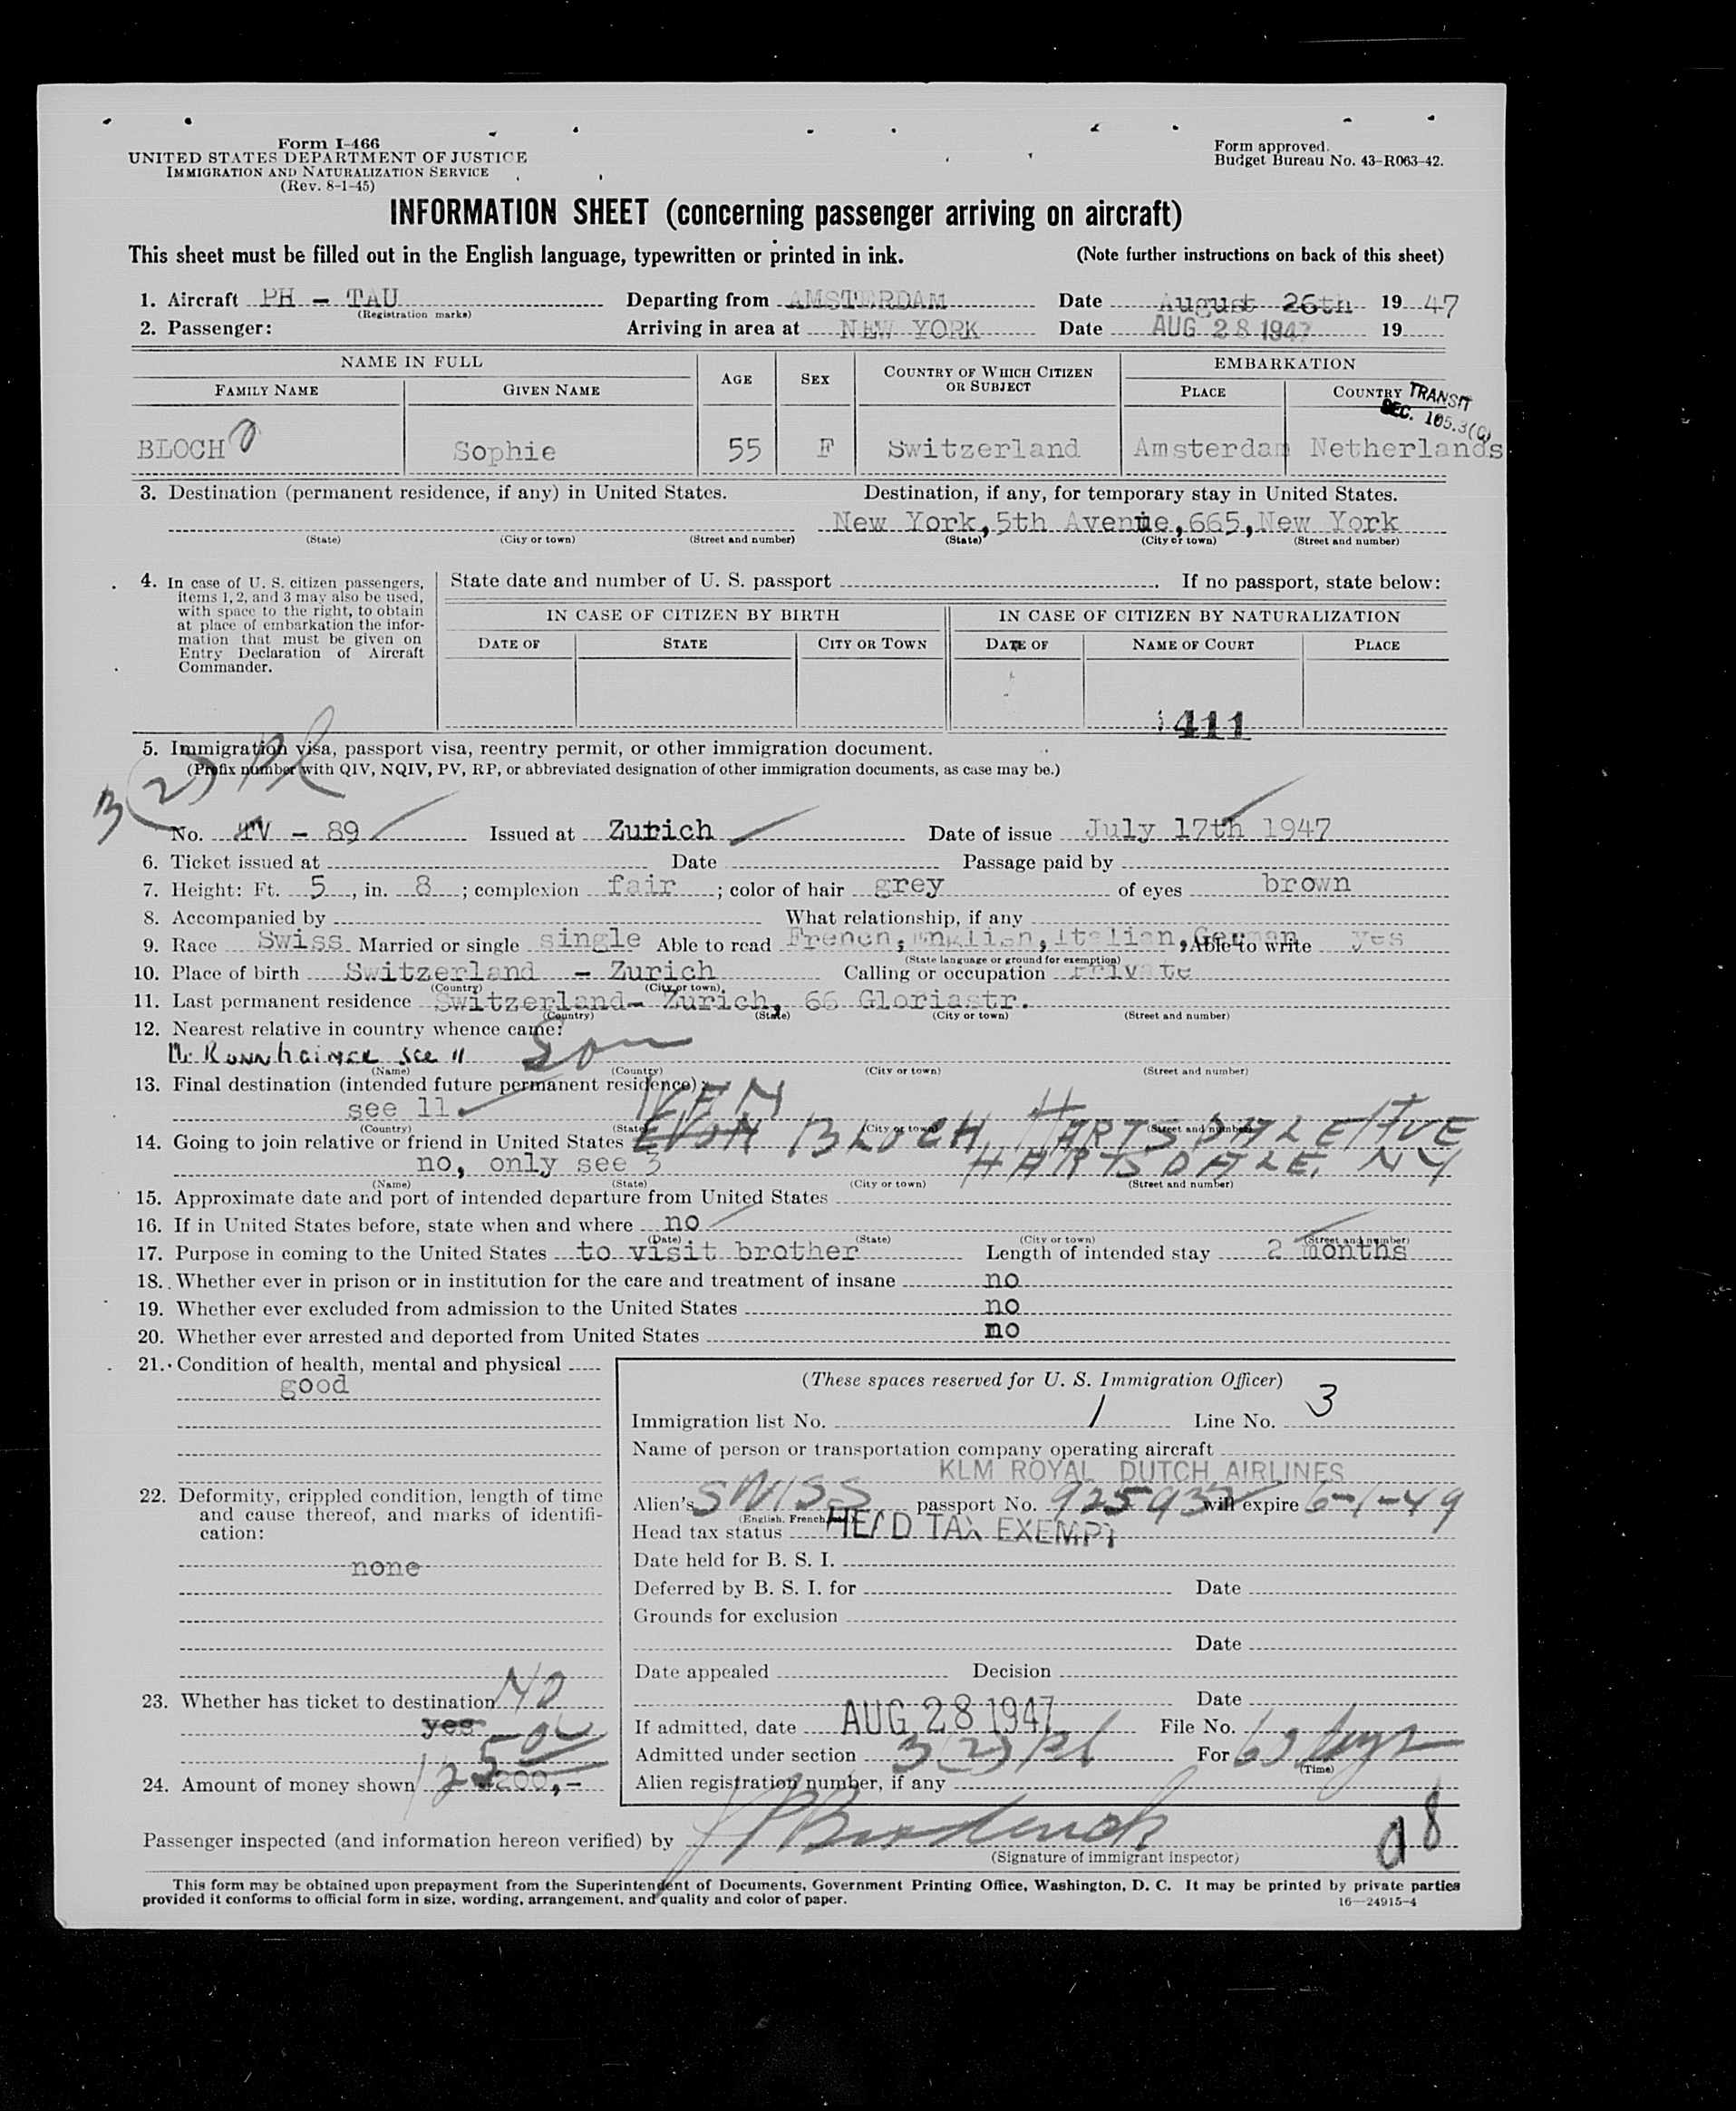 Form I-466
UNITED STATES DEPARTMENT OF JUSTICE
IMMIGRATION AND NATURALIZATION SERVICE
(Rev. 8-1-45)
Form approved.
Budget Bureau No. 43-R063-42.
INFORMATION SHEET (concerning passenger arriving on aircraft)
This sheet must be filled out in the English language, typewritten or printed in ink. (Note further instructions on back of this sheet)
1. Aircraft PH - TAU Departing from AMSTERDAM Date August 26th 1947
(Registration marks)
2. Passenger: Arriving in area at NEW YORK Date AUG 28 1947 19
NAME IN FULL AGE SEX COUNTRY OF WHICH CITIZEN OR SUBJECT EMBARKATION
FAMILY NAME GIVEN NAME PLACE COUNTRY
TRANSIT
SEC. 105.3(C)
BLOCH Sophie 55 F Switzerland Amsterdam Netherlands
3. Destination (permanent residence, if any) in United States. Destination, if any, for temporary stay in United States.
New York, 5th Avenue, 665, New York
(State) (City or town) (Street and number) (State) (City or town) (Street and number)
4. In case of U. S. citizen passengers, items 1, 2, and 3 may also be used, with space to the right, to obtain at place of embarkation the information that must be given on Entry Declaration of Aircraft Commander.
State date and number of U. S. passport If no passport, state below:
IN CASE OF CITIZEN BY BIRTH IN CASE OF CITIZEN BY NATURALIZATION
DATE OF STATE CITY OR TOWN DATE OF NAME OF COURT PLACE
411
5. Immigration visa, passport visa, reentry permit, or other immigration document.
(Prefix number with QIV, NQIV, PV, RP, or abbreviated designation of other immigration documents, as case may be.)
3(2) Pl
No. TV - 89 Issued at Zurich Date of issue July 17th 1947
6. Ticket issued at Date Passage paid by
7. Height: Ft. 5, in. 8; complexion fair; color of hair grey of eyes brown
8. Accompanied by What relationship, if any
9. Race Swiss Married or single single Able to read French, English, Italian, German Able to write yes
(State language or ground for exemption)
10. Place of birth Switzerland - Zurich Calling or occupation Private
(Country) (City or town)
11. Last permanent residence Switzerland- Zurich, 66 Gloriastr.
(Country) (State) (City or town) (Street and number)
12. Nearest relative in country whence came:
see 11 Son
(Name) (Country) (City or town) (Street and number)
13. Final destination (intended future permanent residence):
see 11
(Country) (State) (City or town) (Street and number)
14. Going to join relative or friend in United States BLOCH, HARTSDALE AVE
no, only see 3 HARTSDALE, NY
(Name) (State) (City or town) (Street and number)
15. Approximate date and port of intended departure from United States
16. If in United States before, state when and where no
(Date) (State) (City or town) (Street and number)
17. Purpose in coming to the United States to visit brother Length of intended stay 2 months
18. Whether ever in prison or in institution for the care and treatment of insane no
19. Whether ever excluded from admission to the United States no
20. Whether ever arrested and deported from United States no
21. Condition of health, mental and physical
good
22. Deformity, crippled condition, length of time and cause thereof, and marks of identification:
none
23. Whether has ticket to destination NO
yes
24. Amount of money shown 200,-
(These spaces reserved for U. S. Immigration Officer)
Immigration list No. 1 Line No. 3
Name of person or transportation company operating aircraft
KLM ROYAL DUTCH AIRLINES
Alien's SWISS passport No. 925937 will expire 6-1-49
(English, French, etc.)
Head tax status HEAD TAX EXEMPT
Date held for B. S. I.
Deferred by B. S. I. for Date
Grounds for exclusion
Date
Date appealed Decision
Date
If admitted, date AUG 28 1947 File No.
Admitted under section 3(2) Pl For 63 days
(Time)
Alien registration number, if any
Passenger inspected (and information hereon verified) by
(Signature of immigrant inspector)
This form may be obtained upon prepayment from the Superintendent of Documents, Government Printing Office, Washington, D. C. It may be printed by private parties
provided it conforms to official form in size, wording, arrangement, and quality and color of paper. 16—24915-4